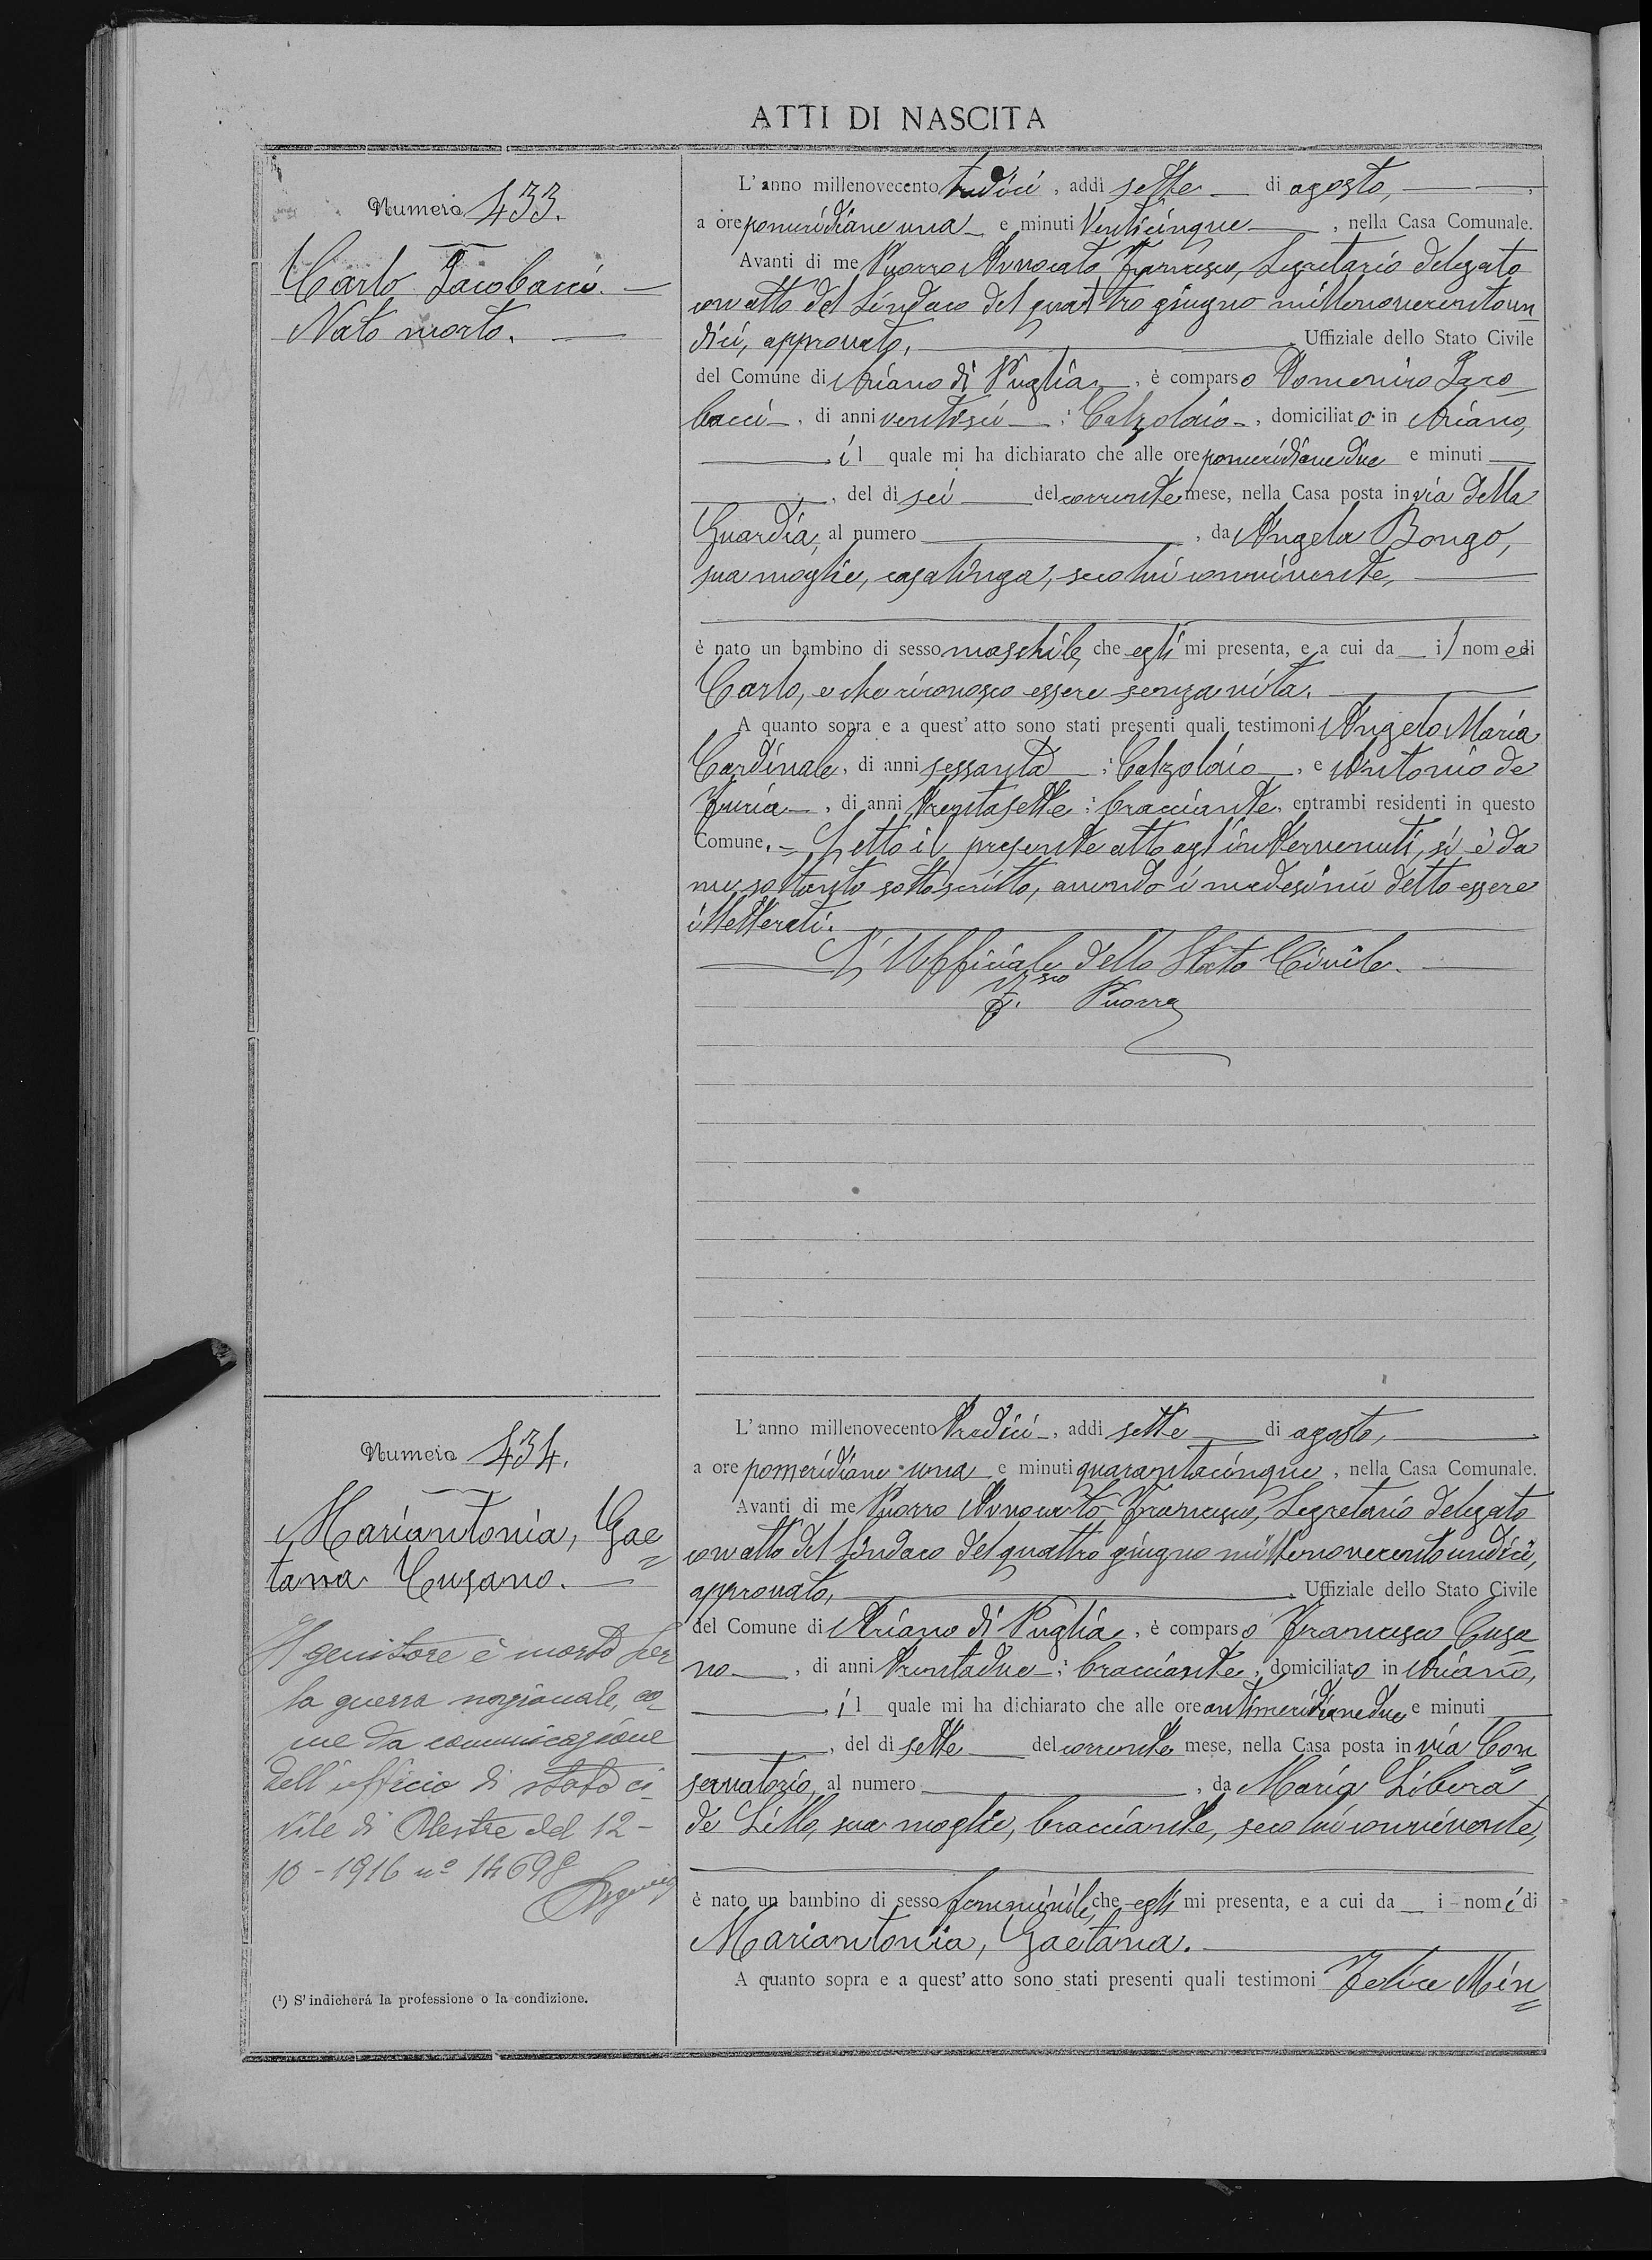 ATTI DI NASCITA
Numero 433.
Carlo Jacobacci.
Nato morto.
L'anno millenovecento tredici, addì sette di agosto,
a ore pomeridiane una e minuti venticinque, nella Casa Comunale.
Avanti di me Puorro Avvocato Francesco, Segretario delegato
con atto del Sindaco del quattro giugno millenovecentoun
dici, approvato, Uffiziale dello Stato Civile
del Comune di Ariano di Puglia, è comparso Domenico Jaco
bacci, di anni ventisei, Calzolaio, domiciliato in Ariano,
il quale mi ha dichiarato che alle ore pomeridiane due e minuti
, del dì sei del corrente mese, nella Casa posta in via della
Guardia, al numero , da Angela Bongo,
sua moglie, casalinga, seco lui convivente,
è nato un bambino di sesso maschile, che egli mi presenta, e a cui da il nome di
Carlo, e che riconosco essere senza vita.
A quanto sopra e a quest'atto sono stati presenti quali testimoni Angelo Maria
Cardinale, di anni sessanta, Calzolaio, e Antonio de
Furia, di anni trentasette, bracciante, entrambi residenti in questo
Comune. = Letto il presente atto agl'intervenuti, si è da
me soltanto sottoscritto, avendo i medesimi detto essere
illetterati.
L'Uffiziale dello Stato Civile.
F.sco Puorro
Numero 434.
Mariantonia, Gae=
tana Cusano.
Il genitore è morto per
la guerra nazionale, co-
me da comunicazione
dell'ufficio di stato ci-
vile di Mestre del 12-
10-1916 n° 14698
L'anno millenovecento tredici, addì sette di agosto,
a ore pomeridiane una e minuti quarantacinque, nella Casa Comunale.
Avanti di me Puorro Avvocato Francesco, Segretario delegato
con atto del Sindaco del quattro giugno millenovecentoundici,
approvato, Uffiziale dello Stato Civile
del Comune di Ariano di Puglia, è comparso Francesco Cusa
no, di anni trentadue, bracciante, domiciliato in Ariano,
il quale mi ha dichiarato che alle ore antimeridiane due e minuti
, del dì sette del corrente mese, nella Casa posta in via Con
servatorio, al numero , da Maria Libera
de Lillo, sua moglie, bracciante, seco lui convivente,
è nato un bambino di sesso femminile, che egli mi presenta, e a cui da i nomi di
Mariantonia, Gaetana.
A quanto sopra e a quest'atto sono stati presenti quali testimoni Felice Min=
(¹) S'indicherá la professione o la condizione.